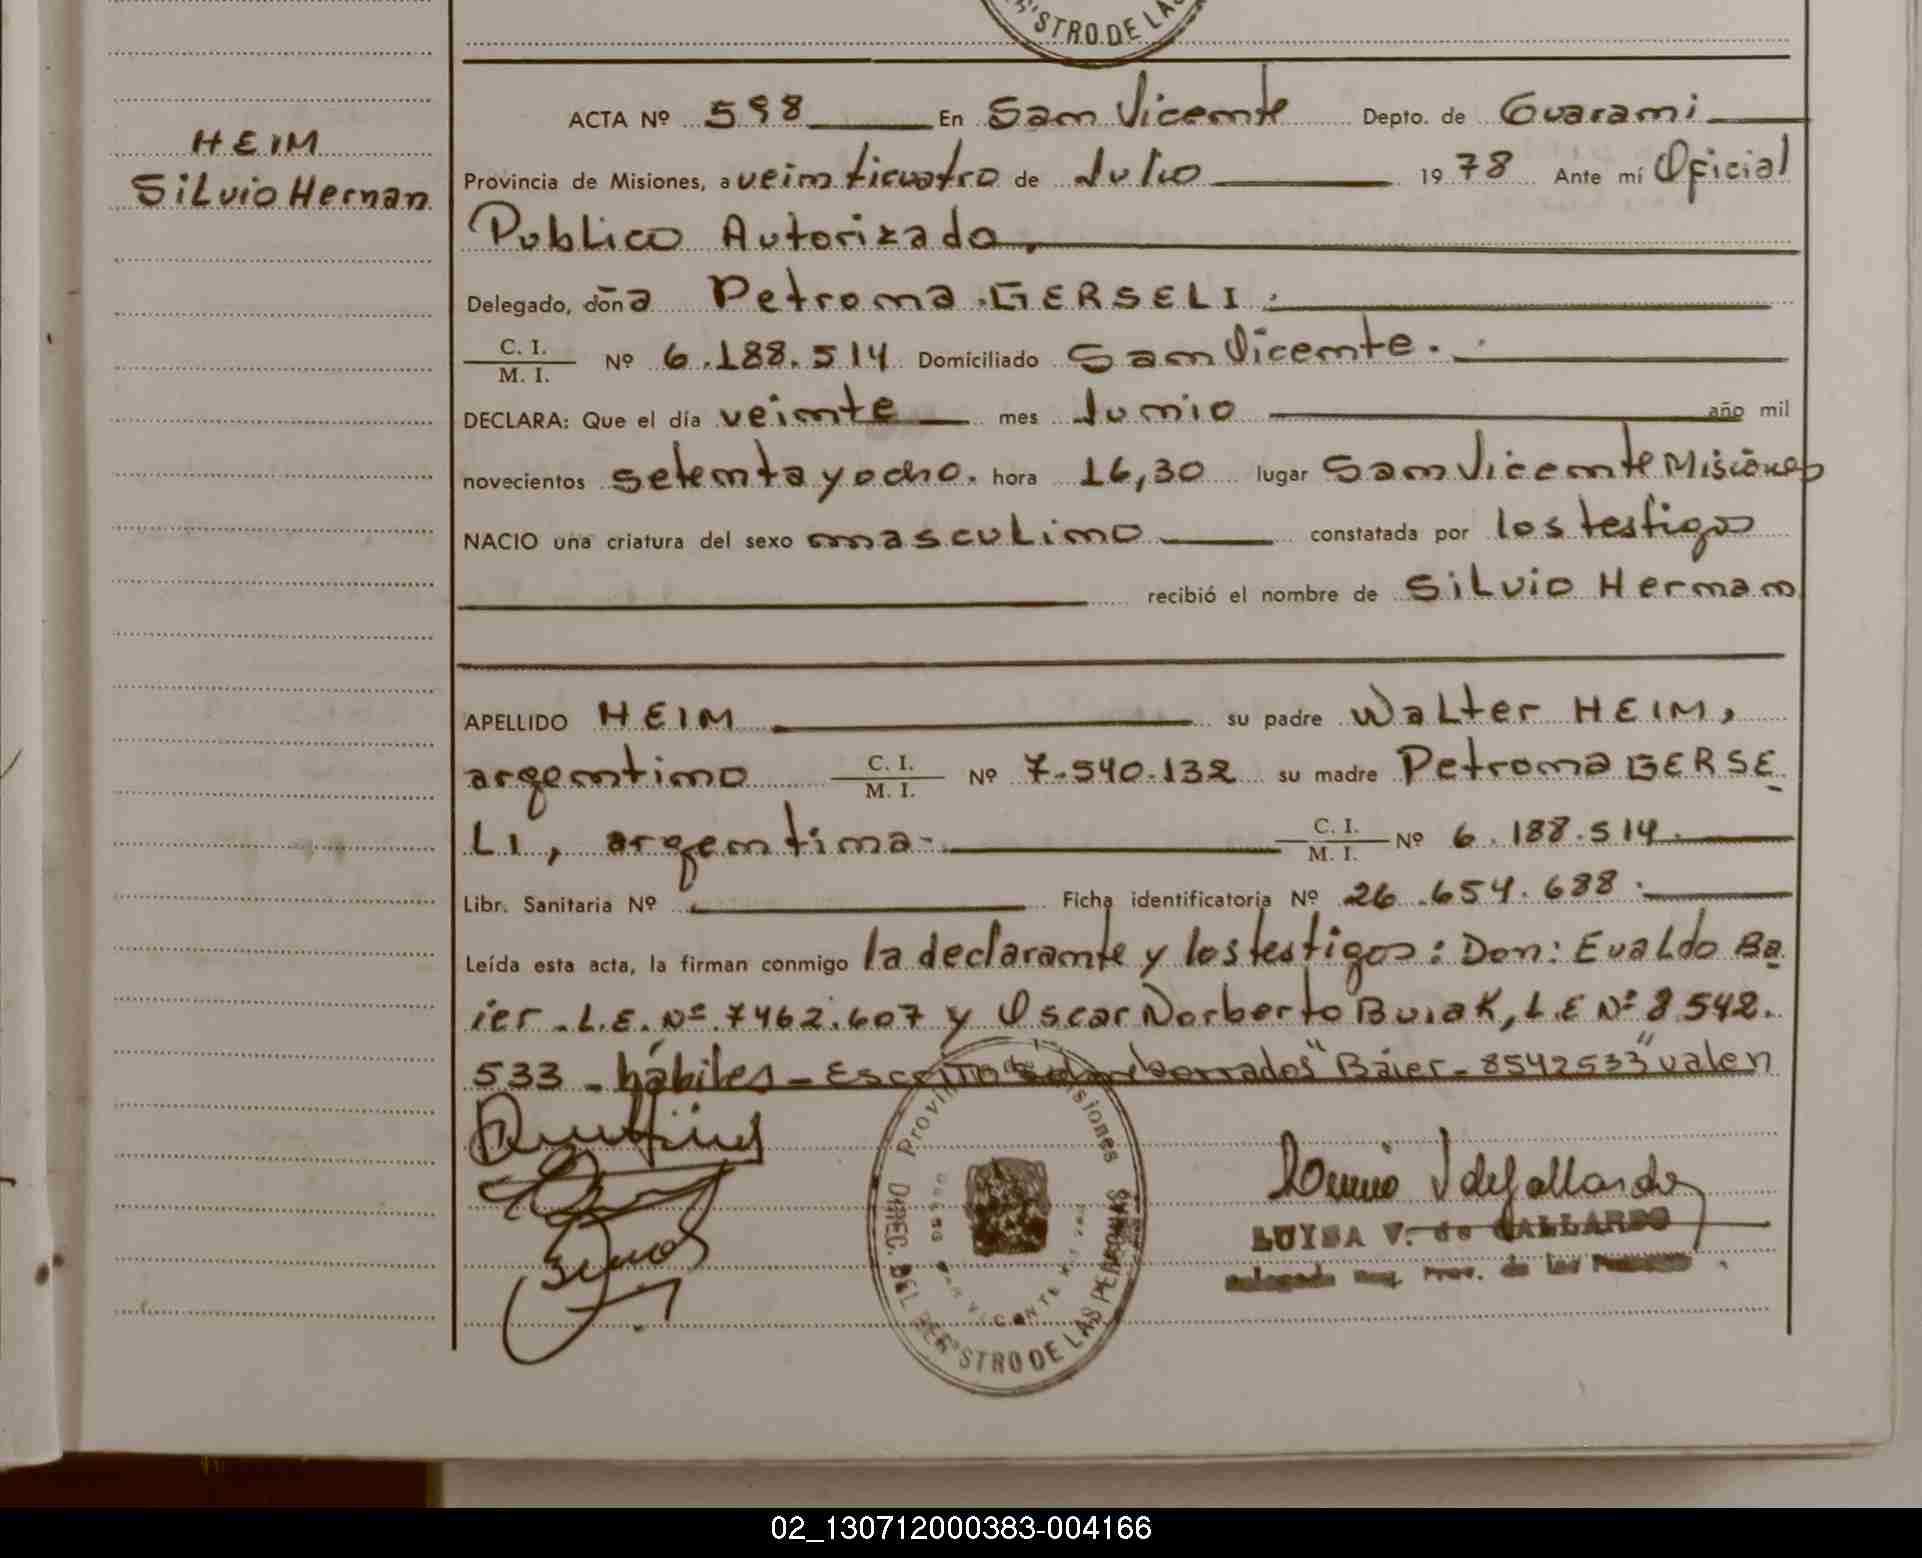 STRO DE LAS
ACTA Nº 598 En San Vicente Depto. de Guarani
HEIM
Silvio Hernan
Provincia de Misiones, a veinticuatro de Julio 1978 Ante mí Oficial
Publico Autorizado,
Delegado, doña Petrona GERSELI.
C. I.
M. I. Nº 6.188.514 Domiciliado San Vicente.
DECLARA: Que el día veinte mes Junio año mil
novecientos setenta y ocho. hora 16,30 lugar San Vicente Misiones
NACIO una criatura del sexo masculino constatada por los testigos
recibió el nombre de Silvio Hernan
APELLIDO HEIM su padre Walter HEIM,
argentino C. I. M. I. Nº 7.540.132 su madre Petrona GERSE
LI, argentina- C. I. M. I. Nº 6.188.514.
Libr. Sanitaria Nº Ficha identificatoria Nº 26.654.688.
Leída esta acta, la firman conmigo la declarante y los testigos: Don: Evaldo Ba
ier. L.E. Nº 7462.607 y Oscar Norberto Buiak, L.E Nº 8.542.
533 - hábiles - Escrito sobreborrados "Baier - 8542533" valen
Provin isiones
DIREC. DEL REGISTRO DE LAS PERSONAS
SAN VICENTE
LUISA V. de GALLARDO
Delegada Reg. Prov. de las Personas
02_130712000383-004166